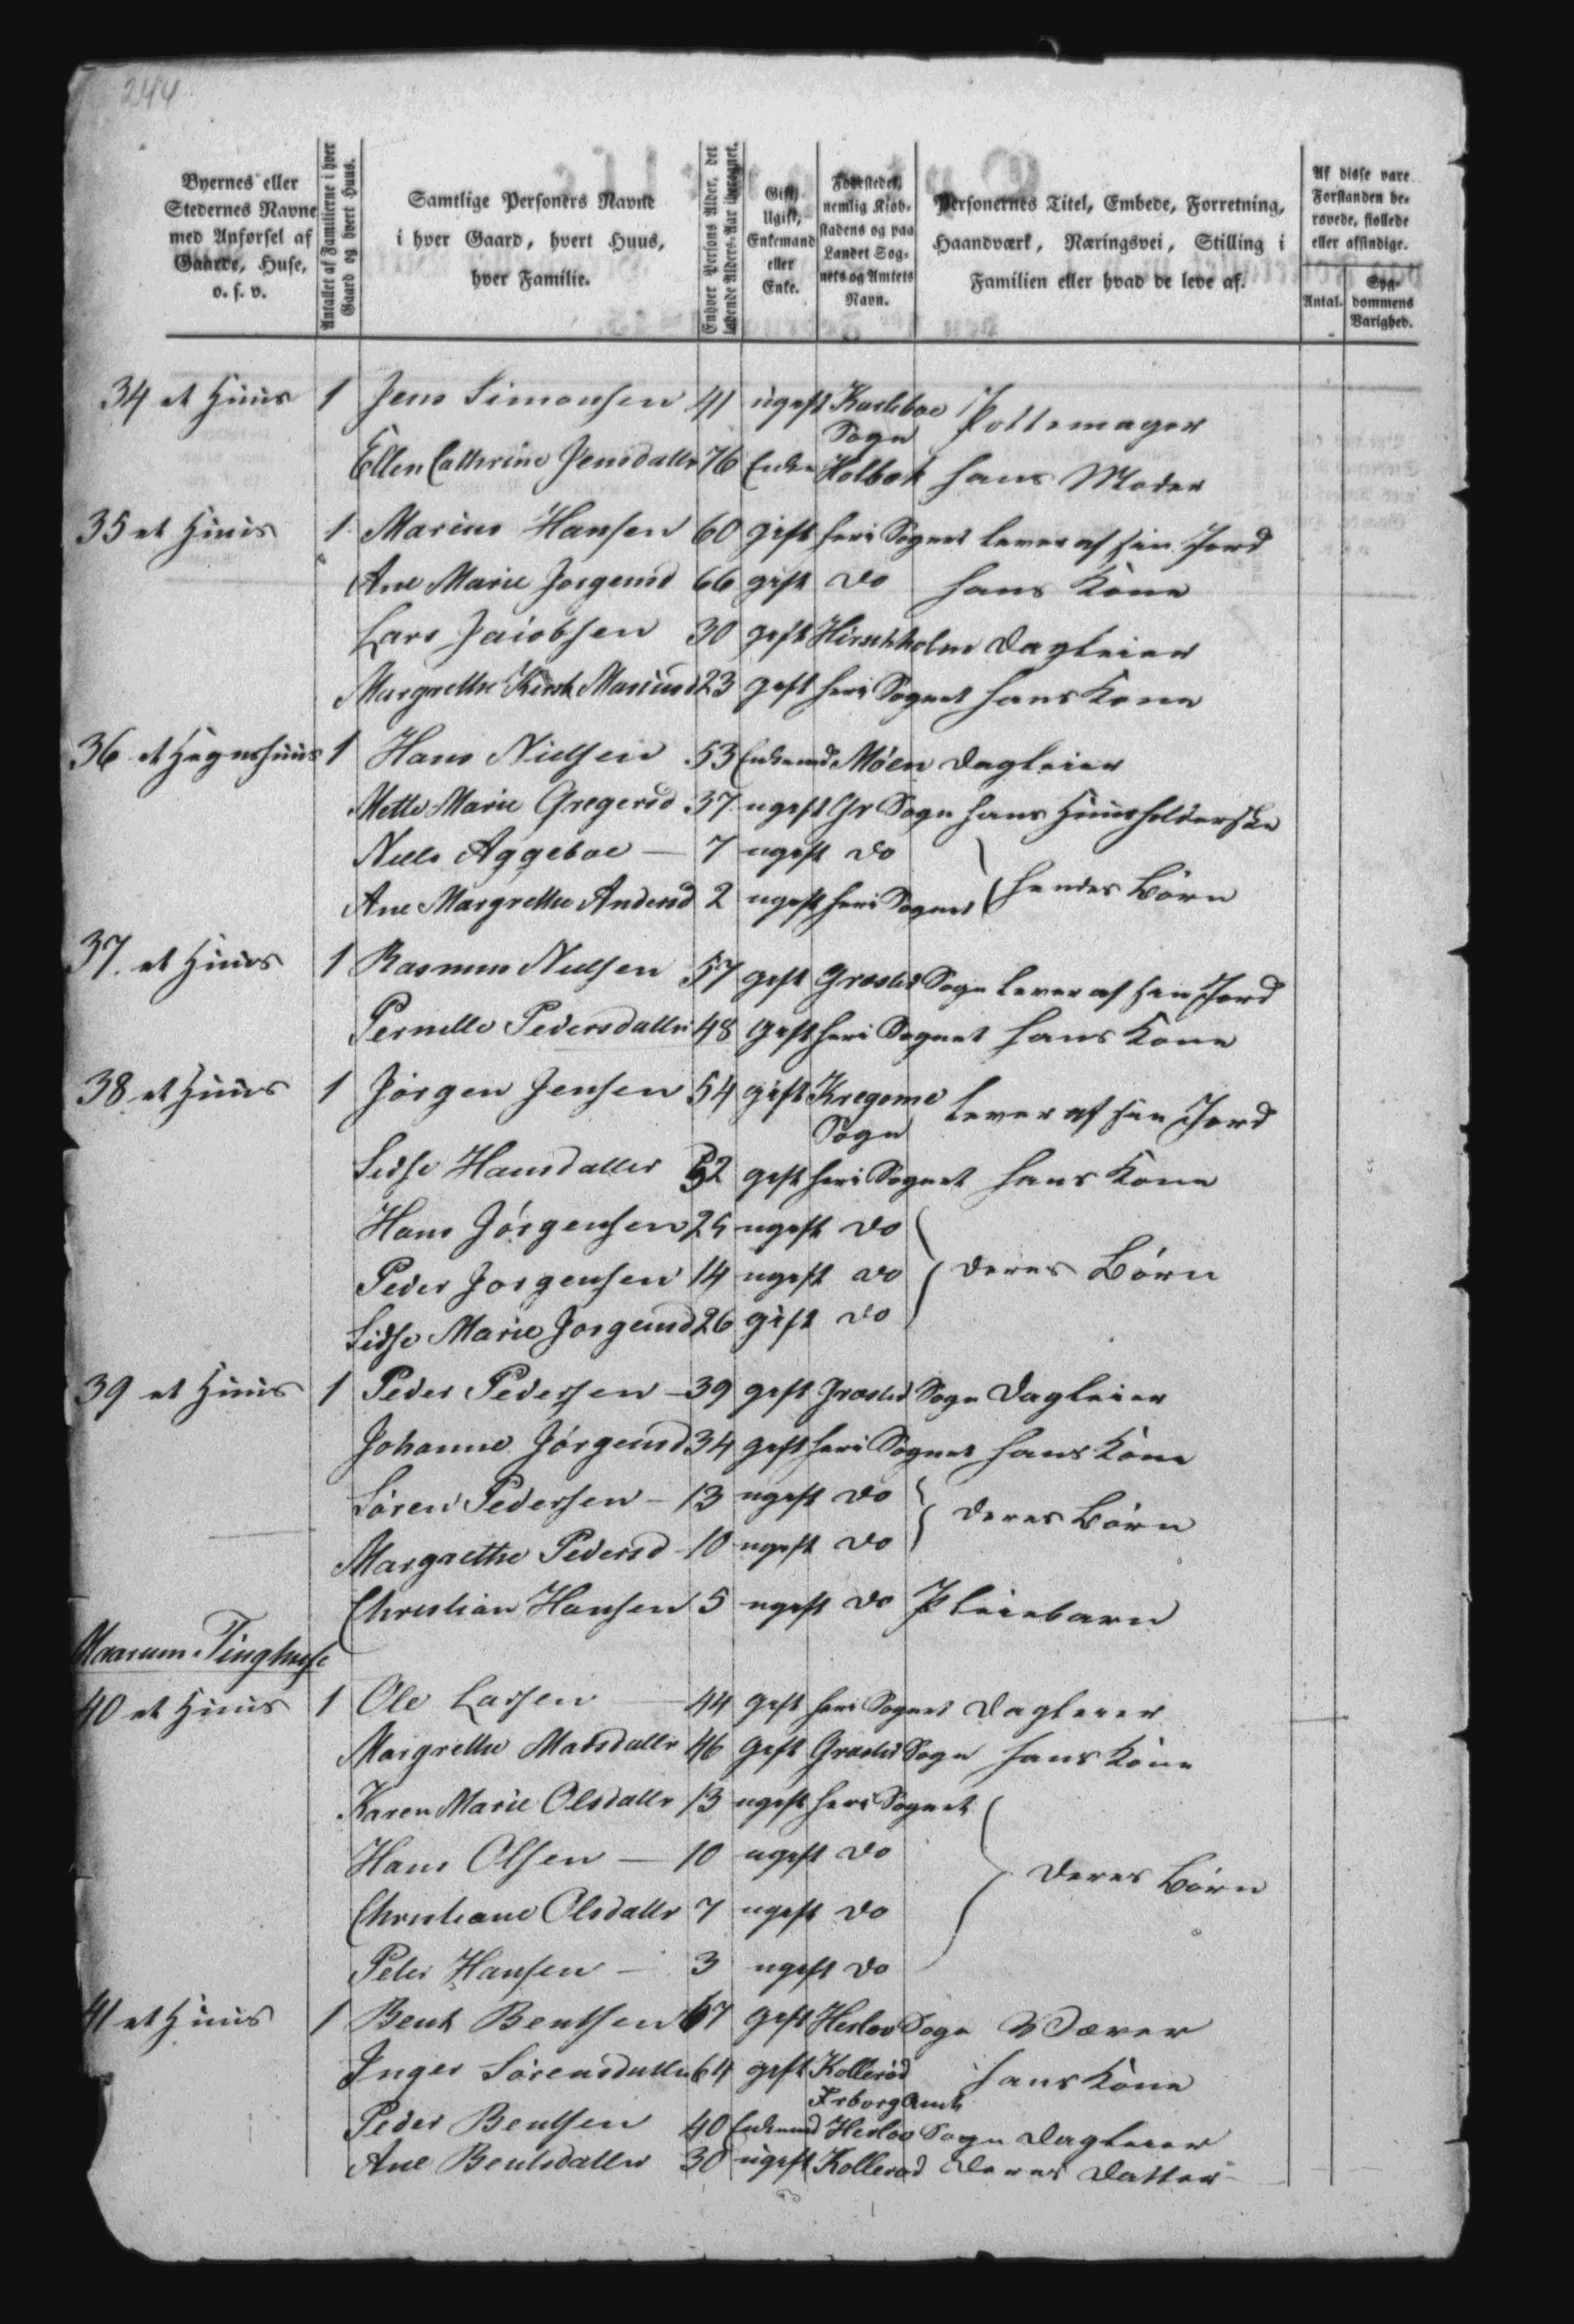 244
Byernes eller Stedernes Navne med Anførsel af Gaarde, Huse, o. s. v.
Antallet af Familierne i hver Gaard og hvert Huus.
Samtlige Personers Navne i hver Gaard, hvert Huus, hver Familie.
Enhver Persons Alder, det løbende Alders-Aar iberegnet.
Gift, Ugift, Enkemand eller Enke.
Fødestedet, nemlig Kiøbstadens og paa Landet Sognets og Amtets Navn.
Personernes Titel, Embede, Forretning, Haandværk, Næringsvei, Stilling i Familien eller hvad de leve af.
Af disse vare Forstanden berøvede, fiollede eller afsindige.
Antal. Sygdommens Varighed.
34 et Huus 1 Jens Simonsen 41 ugift Karleboe Sogn Pottemager
Ellen Cathrine Jensdatter 76 Enke Holbæk hans Moder
35 et Huus 1 Marius Hansen 60 gift her i Sognet lever af sin Jord
Ane Marie Jorgensd 66 gift do hans Kone
Lars Jacobsen 30 gift Hirschholm Dagleier
Margrethe Kirst Mariusd 23 gift her i Sognet hans Kone
36 et Hegnshuus 1 Hans Nielsen 53 Enkemd Möen Dagleier
Mette Marie Gregersd 37 ugift Gr Sogn hans Huusholderske
Niels Aggeboe — 7 ugift do
Ane Margrethe Andersd 2 ugift her i Sognet hendes Börn
37 et Huus 1 Rasmus Nielsen 57 gift Græsted Sogn lever af sin Jord
Pernille Pedersdatter 48 gift her i Sognet hans Kone
38 et Huus 1 Jörgen Jensen 54 gift Kregome Sogn lever af sin Jord
Sidse Hansdatter 52 gift her i Sognet hans Kone
Hans Jörgensen 25 ugift do
Peder Jorgensen 14 ugift do deres Börn
Sidse Marie Jorgensd 26 gift do
39 et Huus 1 Peder Pedersen — 39 gift Græsted Sogn Dagleier
Johanne Jörgensd 34 gift her i Sognet hans Kone
Sören Pedersen — 13 ugift do
Margrethe Pedersd — 10 ugift do deres Börn
Christian Hansen 5 ugift do Pleiebarn
Maarum Tinghuse
40 et Huus 1 Ole Larsen — 44 gift her i Sognet Dagleier
Margrethe Madsdatter 46 gift Græsted Sogn hans Kone
Karen Marie Olsdatter 13 ugift her i Sognet
Hans Olsen — 10 ugift do deres Börn
Christiane Olsdatter 7 ugift do
Peder Hansen — 3 ugift do
41 et Huus 1 Bent Bentsen 67 gift Herlov Sogn Væver
Inger Sörensdatter 64 gift Kolleröd Frborg Amt hans Kone
Peder Bentsen 40 Enkemd Herlov Sogn Dagleier
Ane Bentsdatter 30 ugift Kolleröd deres Datter